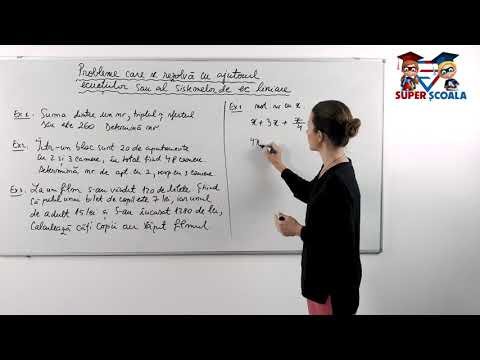 Probleme care se rezolvă cu ajutorul
ecuațiilor sau al sistemelor de ec liniare
Ex 1. Suma dintre un nr, triplul și sfertul
său este 260 Determină nr
Ex 2. Într-un bloc sunt 20 de apartamente
cu 2 și 3 camere, în total fiind 48 camere
Determină nr de apt cu 2, resp cu 3 camere
Ex 3. La un film s-au vândut 120 de bilete. Știind
că prețul unui bilet de copil este 7 lei, iar unul
de adult 15 lei și s-au încasat 1380 de lei,
Calculează câți copii au văzut filmul
Ex 1 not. nr cu x.
x + 3x + x/4
4x
SUPER ȘCOALA